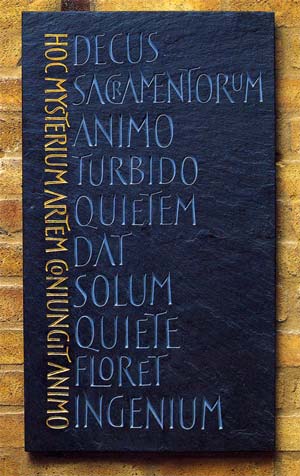 HOC MYSTERIUM ARTEM CONIUNGIT ANIMO
DECUS
SACRAMENTORUM
ANIMO
TURBIDO
QUIETEM
DAT
SOLUM
QUIETE
FLORET
INGENIUM